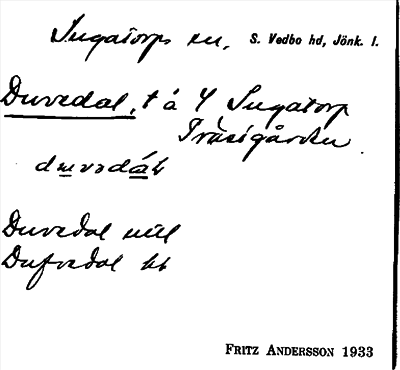 Ingatorps sn. S. Vedbo hd, Jönk. l.
Duvedal, t å 4 Ingatorp
Präsigården
Duvedal
Dufvedal
FRITZ ANDERSSON 1933